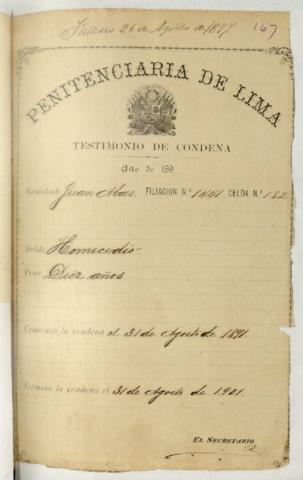 Falleció 26 de Agosto de 1897 167
PENITENCIARIA DE LIMA
TESTIMONIO DE CONDENA
Año de 189
Rematado Juan Mas FILIACION N.º 1441 CELDA N.º 132
Delito Homicidio
Pena Diez años
Comienza la condena el 31 de Agosto de 1891.
Termina la condena el 31 de Agosto de 1901.
EL SECRETARIO